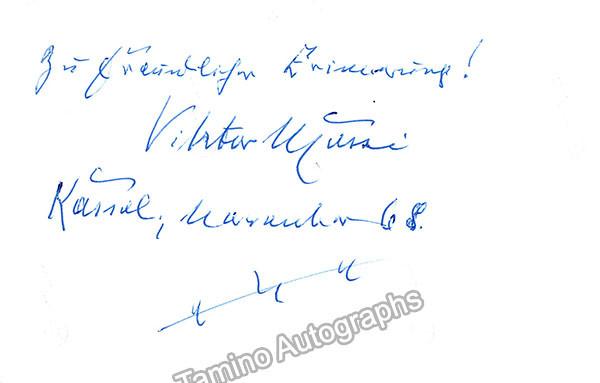 Zu freundlicher Erinnerung!
Viktor
Kassel, November 68.
Tamino Autographs